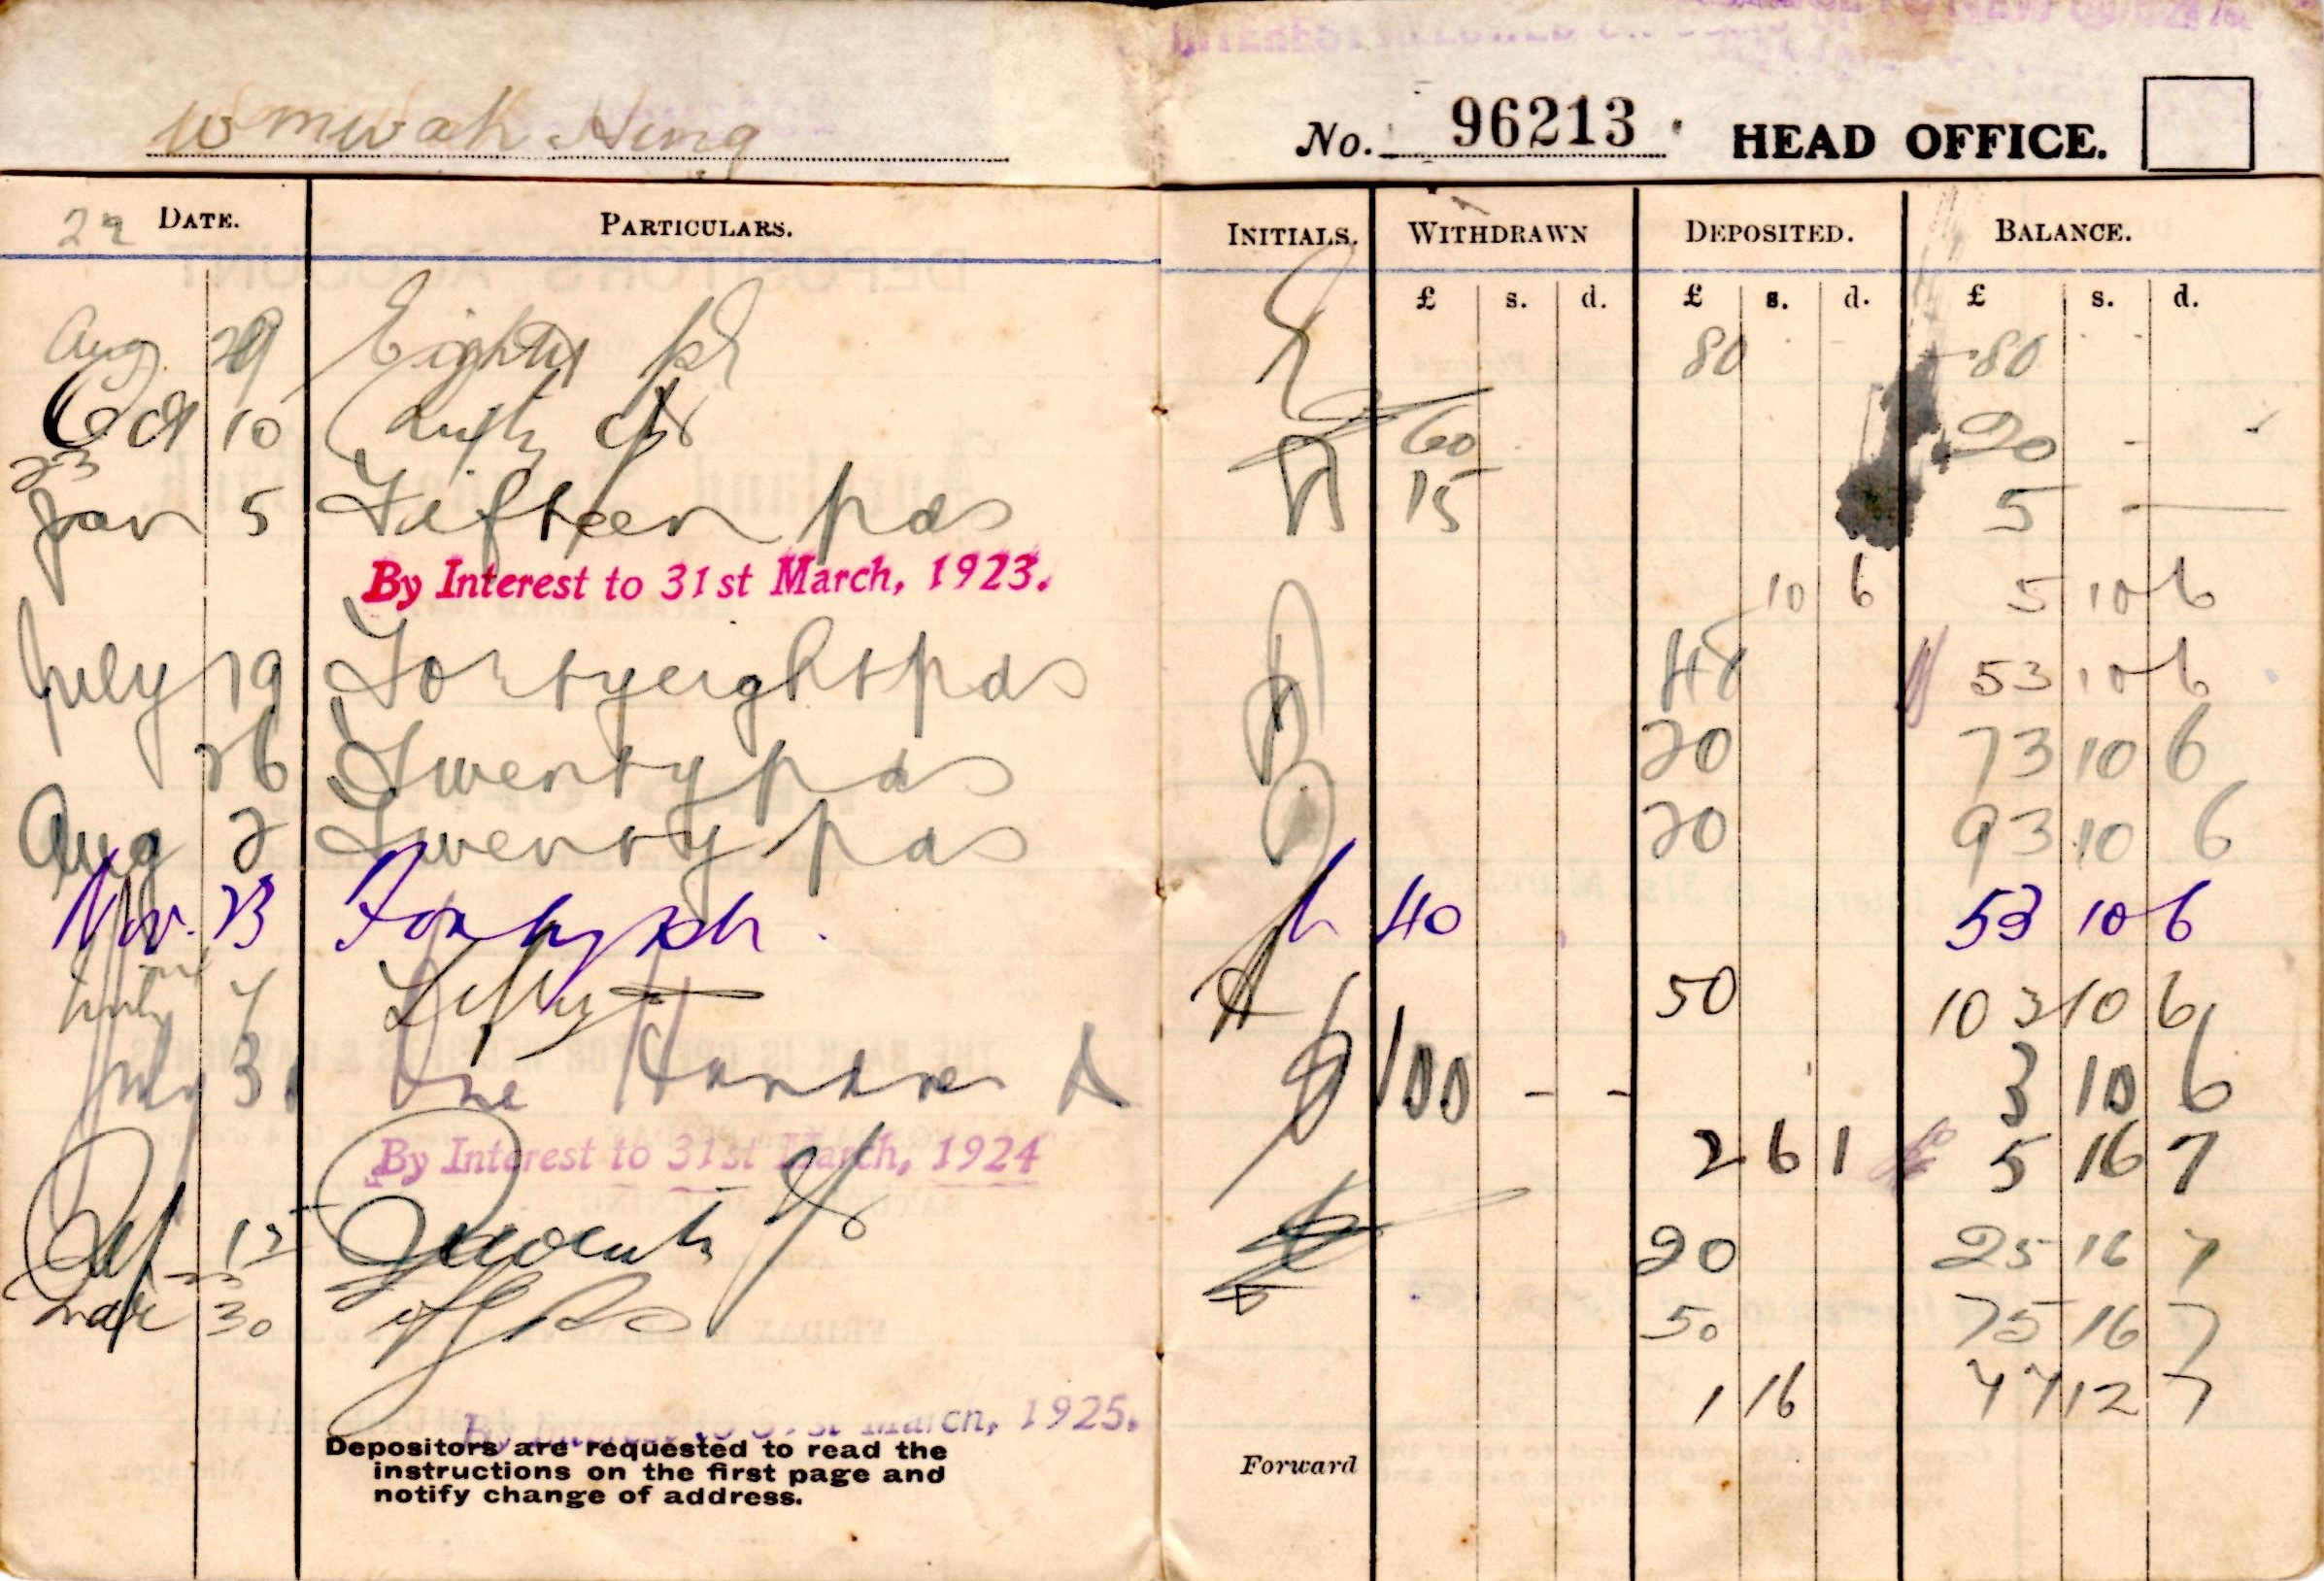 Wm Wah Hing
No. 96213 HEAD OFFICE.
22 DATE. PARTICULARS. INITIALS. WITHDRAWN DEPOSITED. BALANCE.
£ s. d. £ s. d. £ s. d.
Aug 29 Eighty pds 80 - - 80 - -
Oct 10 60 20 - -
23
Jan 5 Fifteen pds 15 5 -
By Interest to 31st March, 1923. 10 6 5 10 6
July 19 Fortyeight pds 48 53 10 6
26 Twenty pds 20 73 10 6
Aug 2 Twenty pds 20 93 10 6
Nov. 23 Forty pds. 40 53 10 6
July 7 Fifty 50 103 10 6
July 31 One Hundred 100 - - 3 10 6
By Interest to 31st March, 1924 2 6 1 5 16 7
15 Twenty 20 25 16 7
Mar 30 50 75 16 7
By Interest to 31st March, 1925. 1 16 77 12 7
Depositors are requested to read the
instructions on the first page and
notify change of address.
Forward